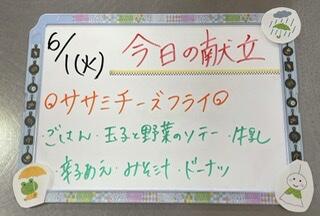 6/1(火) 今日の献立
ササミチーズフライ
ごはん・玉子と野菜のソテー・牛乳
辛子あえ・みそ汁・ドーナツ